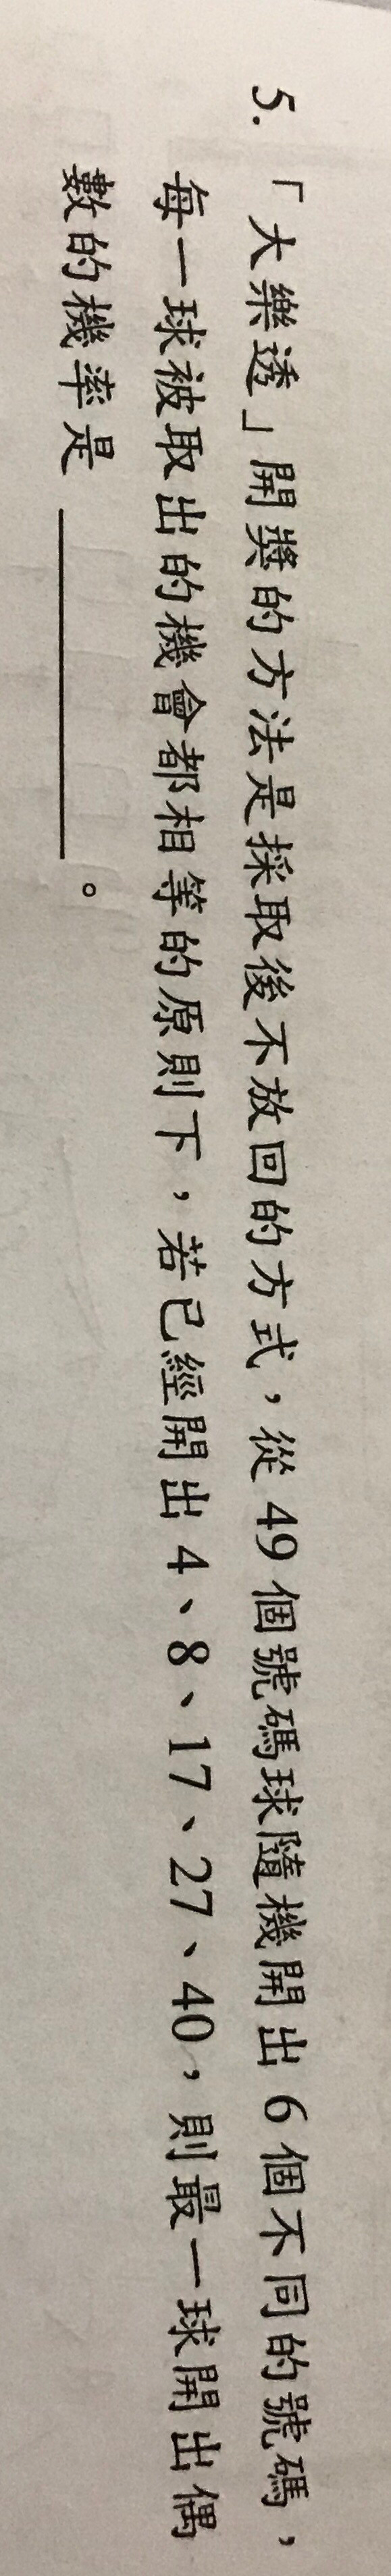 5. 「大樂透」開獎的方法是採取後不放回的方式，從 49 個號碼球隨機開出 6 個不同的號碼，
每一球被取出的機會都相等的原則下，若已經開出 4、8、17、27、40，則最一球開出偶
數的機率是＿＿＿＿＿＿。